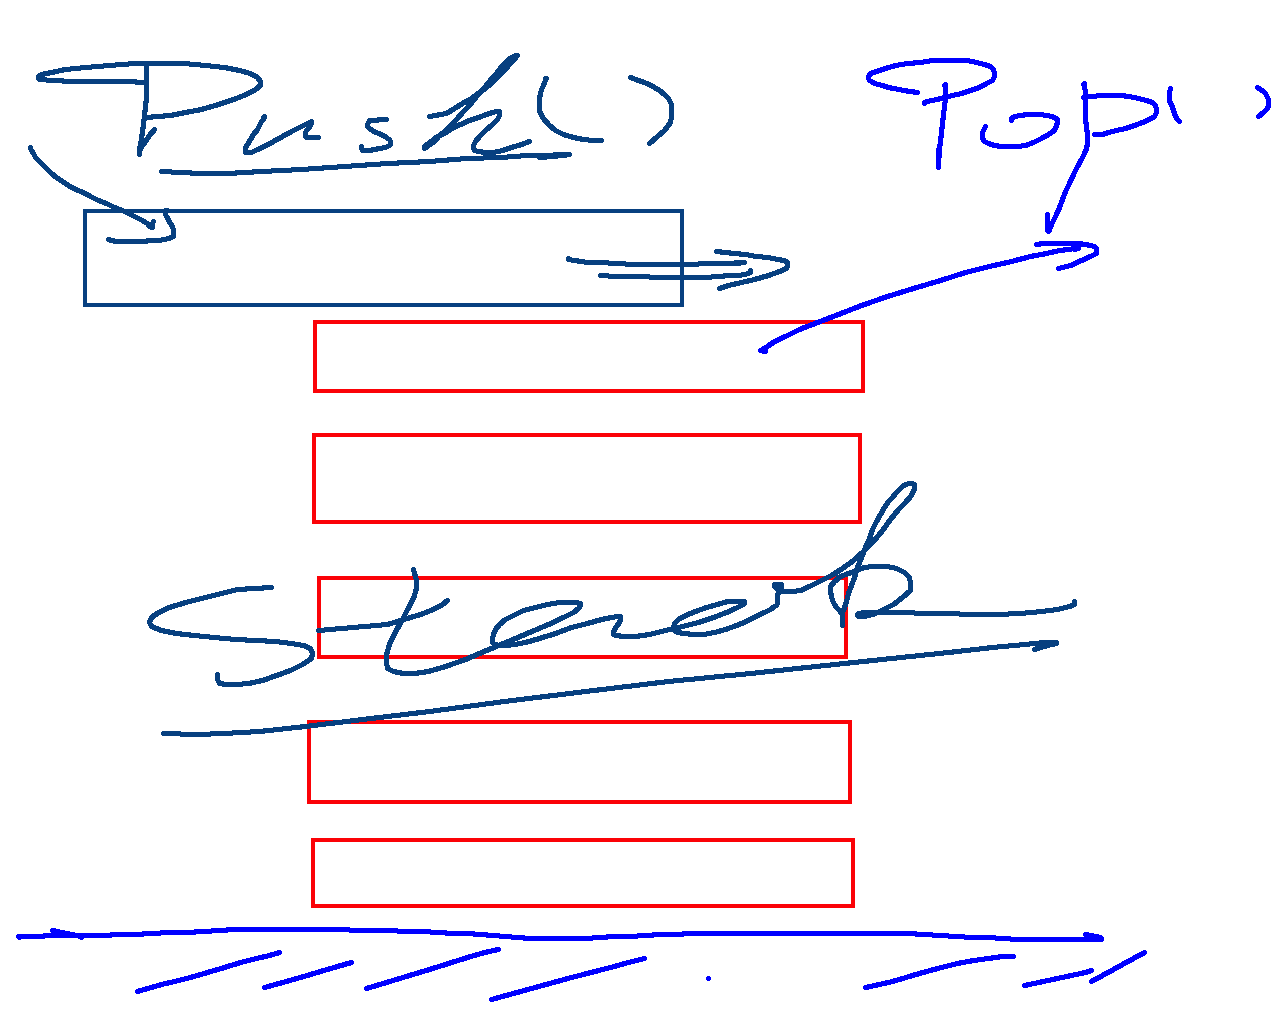 Push() Pop()
Stack